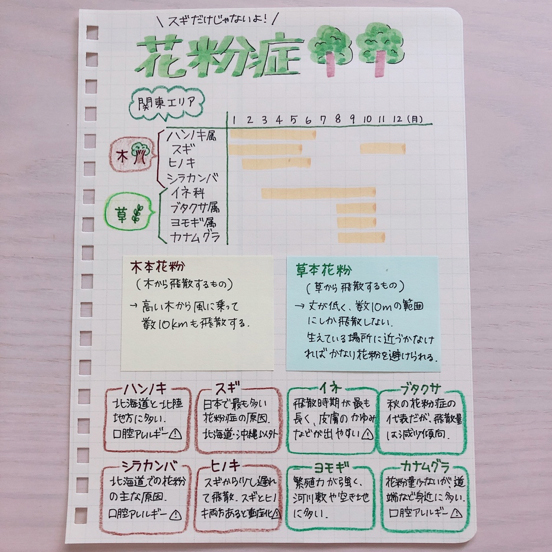 \ スギだけじゃないよ! /
花粉症
関東エリア
1 2 3 4 5 6 7 8 9 10 11 12 (月)
木
ハンノキ属
スギ
ヒノキ
シラカンバ
草
イネ科
ブタクサ属
ヨモギ属
カナムグラ
木本花粉
(木から飛散するもの)
→ 高い木から風に乗って
数10kmも飛散する.
草本花粉
(草から飛散するもの)
→ 丈が低く、数10mの範囲
にしか飛散しない.
生えている場所に近づかなけ
ればかなり花粉を避けられる.
ハンノキ
北海道と北陸
地方に多い.
口腔アレルギー⚠
スギ
日本で最も多い
花粉症の原因.
北海道・沖縄以外
イネ
飛散時期が最も
長く、皮膚のかゆみ
などが出やすい⚠
ブタクサ
秋の花粉症の
代表だが、飛散量
は減少傾向.
シラカンバ
北海道での花粉
の主な原因.
口腔アレルギー⚠
ヒノキ
スギから少し遅れ
て飛散. スギとヒノ
キ両方あると重症化⚠
ヨモギ
繁殖力が強く、
河川敷や空き地
に多い.
カナムグラ
花粉量少ないが、道
端など身近に多い.
口腔アレルギー⚠